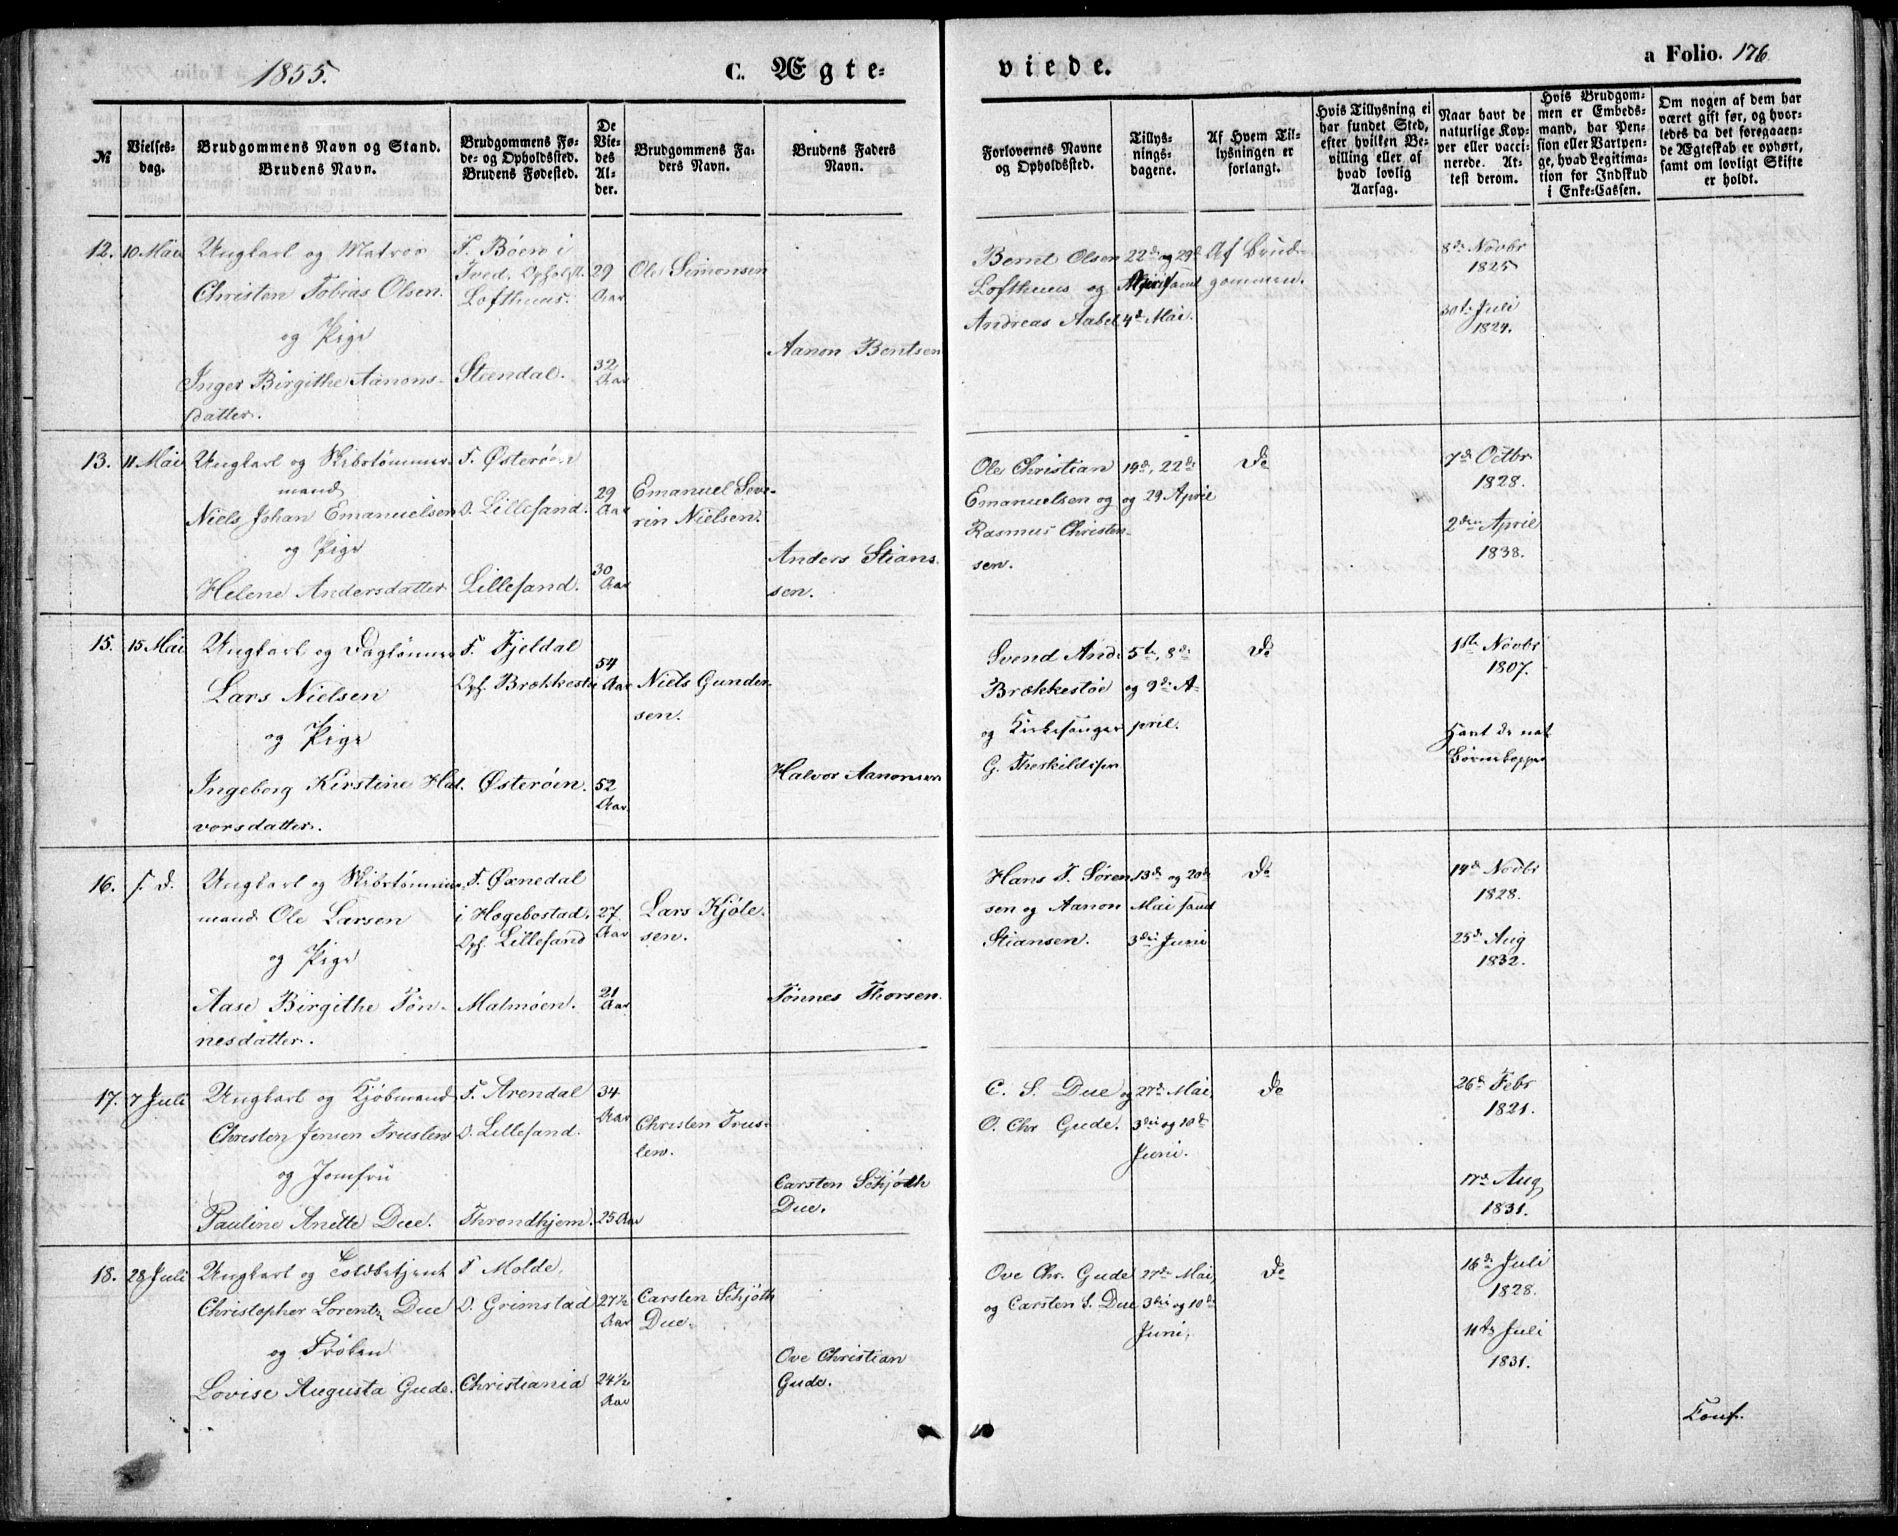 1855.
C. Ægte-
viede.
a Folio. 176
№
Vielses-
dag.
Brudgommens Navn og Stand.
Brudens Navn.
Brudgommens Fø-
de- og Opholdssted.
Brudens Fødested.
De
Vie-
des
Al-
der.
Brudgommens Fa-
ders Navn.
Brudens Faders
Navn.
Forlovernes Navne
og Opholdssted.
Tillys-
nings-
dagene.
Af Hvem Til-
lysningen er
forlangt.
Hvis Tillysning ei
har fundet Sted,
efter hvilken Be-
villing eller af
hvad lovlig
Aarsag.
Naar havt de
naturlige Kop-
per eller vacci-
nerede. At-
test derom.
Hvis Brudgom-
men er Embeds-
mand, har Pen-
sion eller Vartpen-
ge, hvad Legitima-
tion for Indskud
i Enke-Cassen.
Om nogen af dem har
været gift før, og hvor-
ledes da det foregaaen-
de Ægteskab er ophørt,
samt om lovligt Skifte
er holdt.
12. 10 Mai
Ungkarl og Matros
Christen Tobias Olsen.
og Pige
Inger Birgithe Aanons-
datter.
F. Bøen i
Tved. Opholdst.
Lofthuus.
Stændal.
29
Aar
32
Aar
Ole Simonsen
Aanon Bentsen
Bernt Olsen
Lofthuus og
Andreas Aabel
22de og 29de
April samt
4de Mai.
Af Brud-
gommen.
8de Novbr
1825
30te Juli
1824.
13. 11 Mai
Ungkarl og Skibstømmer-
mand
Niels Johan Emanuelsen
og Pige
Helene Andersdatter
F. Østerøen
O. Lillesand.
Lillesand.
29
Aar
30
Aar
Emanuel Seve-
rin Nielsen.
Anders Stians-
sen.
Ole Christian
Emanuelsen og
Rasmus Christen-
sen.
14de, 22de
og 29 April
Do
7de Octbr
1828.
2den April
1838.
15. 15 Mai
Ungkarl og Daglønner
Lars Nielsen
og Pige
Ingeborg Kirstine Hal-
vorsdatter.
F. Fjeldal
Oph. Brækkestø
Østerøen.
54
Aar
52
Aar
Niels Gunder-
sen.
Halvor Aanonsen
Svend And.
Brækkestøe
og Kirkesanger
G. Theskildsen
5te, 8de
og 9de A-
pril.
Do
1ste Novbr
1807.
Havt de nat
Børnekopper
16. s. d.
Ungkarl og Skibstømmer-
mand Ole Larsen
og Pige
Aase Birgithe Tøn-
nesdatter.
F. Øxnedal
i Høgebostad,
Oph. Lillesand
Malmøen.
27
Aar
21
Aar
Lars Kjøle-
sen.
Tønnes Thorsen.
Hans T. Søren-
sen og Aanon
Stiansen.
13de og 20de
Mai samt
3die Juni
Do
14de Novbr
1828.
25de Aug
1832.
17. 7 Juli
Ungkarl og Kjøbmand
Christen Jensen Truslew
og Jomfru
Pauline Anette Due.
F. Arendal
O. Lillesand.
Throndhjem.
34
Aar
25 Aar
Christen Trus-
lew.
Carsten Schjøth
Due.
C. S. Due og
O. Chr Gude.
27de Mai,
3die og 10de
Juni.
Do
26de Febr
1821.
17de Aug
1831.
18. 28 Juli
Ungkarl og Toldbetjent
Christopher Lorentz Due
og Frøken
Lovise Augusta Gude.
F. Molde,
O. Grimstad
Christiania
27½
Aar
24½
Aar
Carsten Schjøth
Due.
Ove Christian
Gude.
Ove Chr. Gude
og Carsten S. Due
27de Mai,
3die og 10de
Juni,
Do
16de Juli
1828.
11te Juli
1831.
Conf.